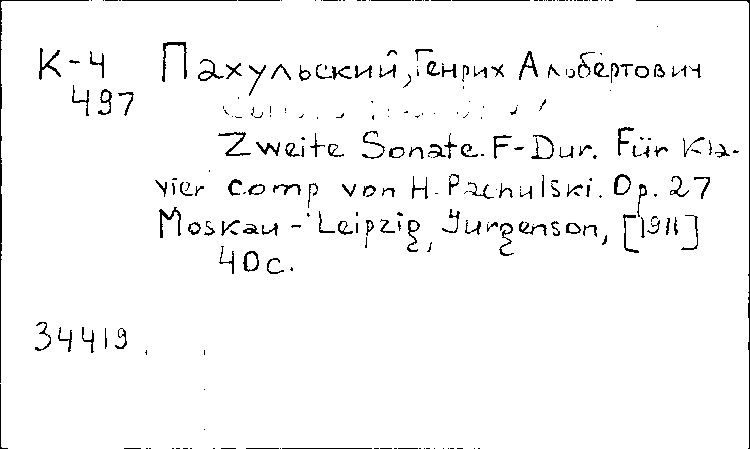 К-4 Пахульский, Генрих Альбертович
497
Zweite Sonate. F-Dur. Für Kla-
vier comp von H. Pachulski. Op. 27
Moskau - Leipzig, Jurgenson, [1911]
40 с.
34419